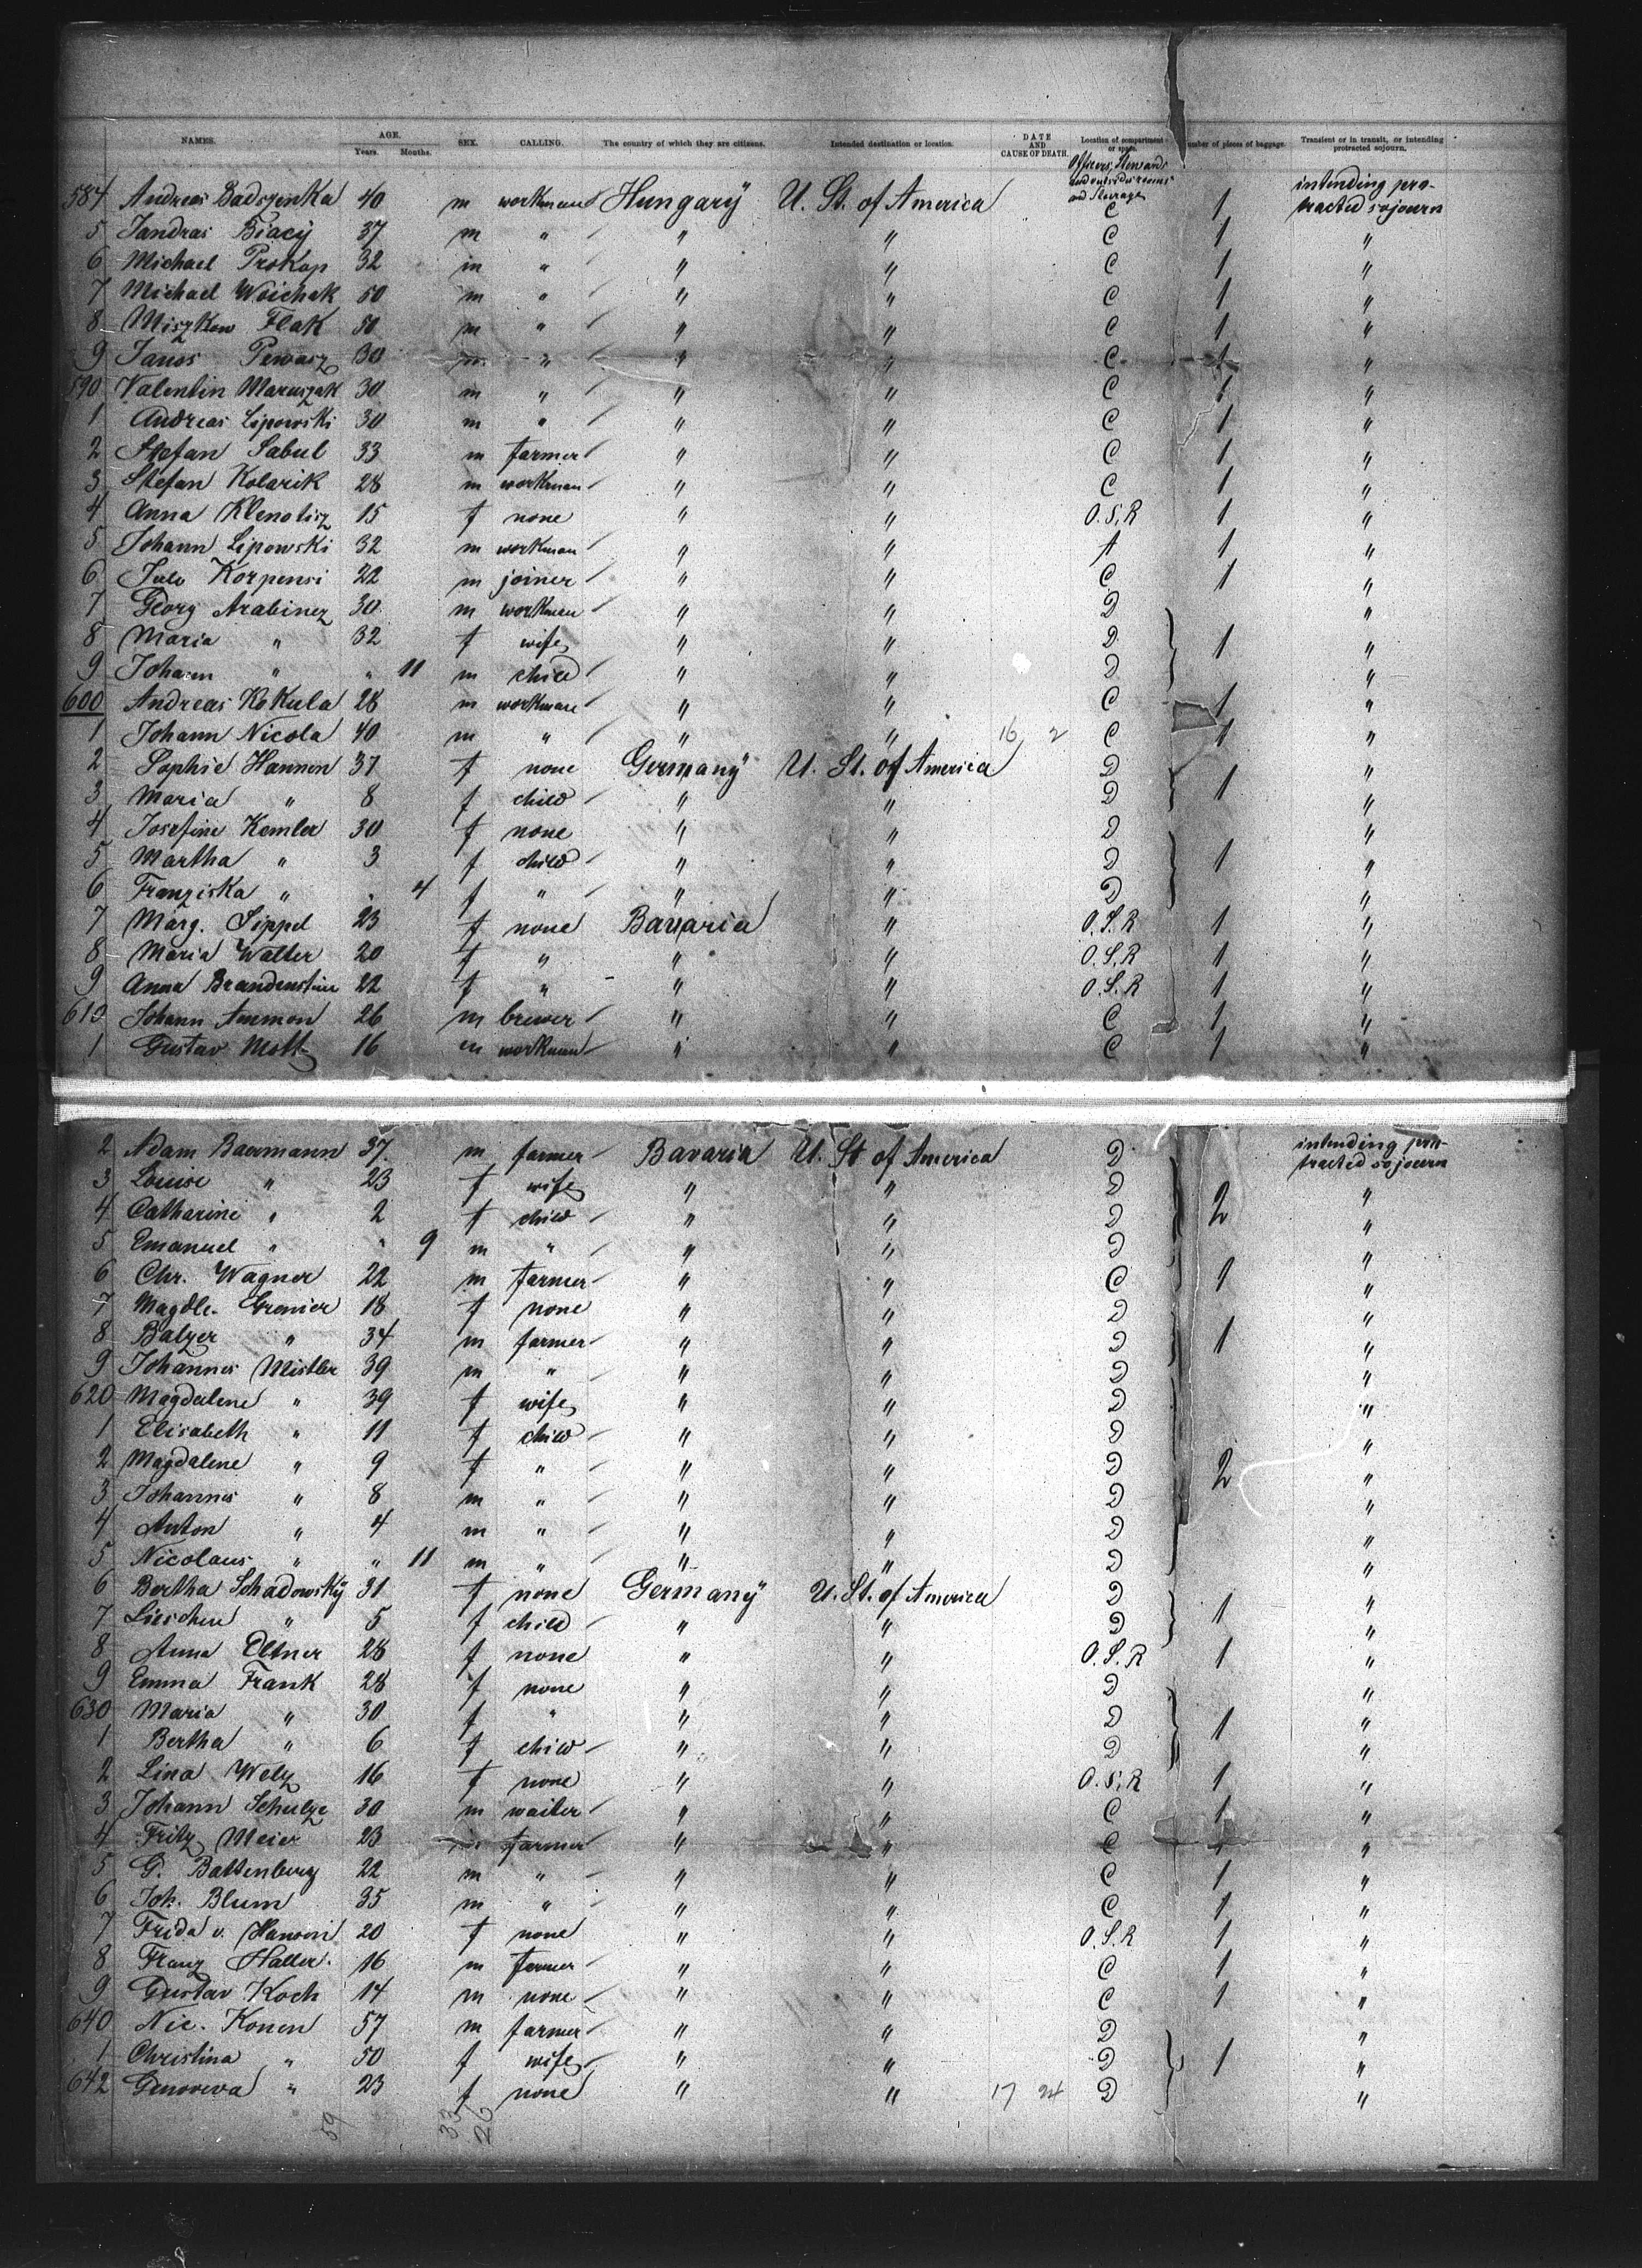 NAMES. AGE. Years. Months. SEX. CALLING. The country of which they are citizens. Intended destination or location. DATE AND CAUSE OF DEATH. Location of compartment or space. Number of pieces of baggage. Transient or in transit, or intending protracted sojourn.
Officers, Stewards and outside rooms and Steerage
584 Andreas Badszinka 40 m workman Hungary U. St. of America C 1 intending protracted sojourn
5 Jandras Biacy 37 m " " " C 1 "
6 Michael Prokop 32 m " " " C 1 "
7 Michael Woichak 50 m " " " C 1 "
8 Miszkow Flak 50 m " " " C 1 "
9 Janos Pewasz 30 m " " " C 1 "
590 Valentin Maruszak 30 m " " " C 1 "
1 Andreas Lipowski 30 m " " " C 1 "
2 Stefan Sabul 33 m farmer " " C 1 "
3 Stefan Kolarik 28 m workman " " C 1 "
4 Anna Klenotisz 15 f none " " O.S.R 1 "
5 Johann Lipowski 32 m workman " " A 1 "
6 Julo Korpensi 22 m joiner " " C 1 "
7 Georg Arabinez 30 m workman " " D "
8 Maria " 32 f wife " " D 1 "
9 Johann " " 11 m child " " D "
600 Andreas Kokula 28 m workman " " C 1 "
1 Johann Nicola 40 m " " " 16 2 C 1 "
2 Sophie Hannen 37 f none Germany U. St. of America D "
3 Maria " 8 f child " " D 1 "
4 Josefine Kemler 30 f none " " D "
5 Martha " 3 f child " " D 1 "
6 Franziska " . 4 f " " " D "
7 Marg. Sippel 23 f none Bavaria " O.S.R 1 "
8 Maria Walter 20 f " " " O.S.R 1 "
9 Anna Brandenstine 22 f " " " O.S.R 1 "
610 Johann Ammon 26 m brewer " " C 1 "
1 Gustav Mott 16 m workman " " C 1 "
2 Adam Baermann 37 m farmer Bavaria U. St of America D intending protracted sojourn
3 Louise " 23 f wife " " D "
4 Catharine " 2 f child " " D 2 "
5 Emanuel " " 9 m " " " D "
6 Chr. Wagner 22 m farmer " " C 1 "
7 Magdle. Grenier 18 f none " " D "
8 Balzer " 34 m farmer " " D 1 "
9 Johannes Mistler 39 m " " " D "
620 Magdalene " 39 f wife " " D "
1 Elisabeth " 11 f child " " D "
2 Magdalene " 9 f " " " D 2 "
3 Johannes " 8 m " " " D "
4 Anton " 4 m " " " D "
5 Nicolaus " " 11 m " " " D "
6 Bertha Schadowsky 31 f none Germany U. St. of America D "
7 Lieschen " 5 f child " " D 1 "
8 Anna Eltner 28 f none " " O.S.R 1 "
9 Emma Frank 28 f none " " D "
630 Maria " 30 f " " " D 1 "
1 Bertha " 6 f child " " D "
2 Lina Welz 16 f none " " O.S.R 1 "
3 Johann Schulze 30 m waiter " " C 1 "
4 Fritz Meier 23 m farmer " " C 1 "
5 G. Battenberg 22 m " " " C 1 "
6 Joh. Blum 35 m " " " C 1 "
7 Frida v. 20 f none " " O.S.R 1 "
8 Franz Haller 16 m farmer " " C 1 "
9 Gustav Koch 14 m none " " C 1 "
640 Nic. Konen 57 m farmer " " D "
1 Christina " 50 f wife " " D 1 "
642 Genoveva " 23 f none " " 17 24 D "
59 33 26